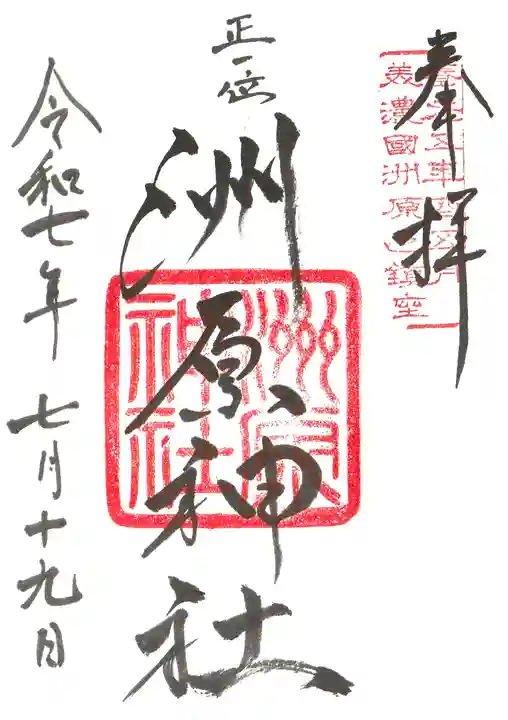 奉拝
美濃國洲原山鎮座
正一位
洲原神社
洲原
神社
令和七年 七月十九日